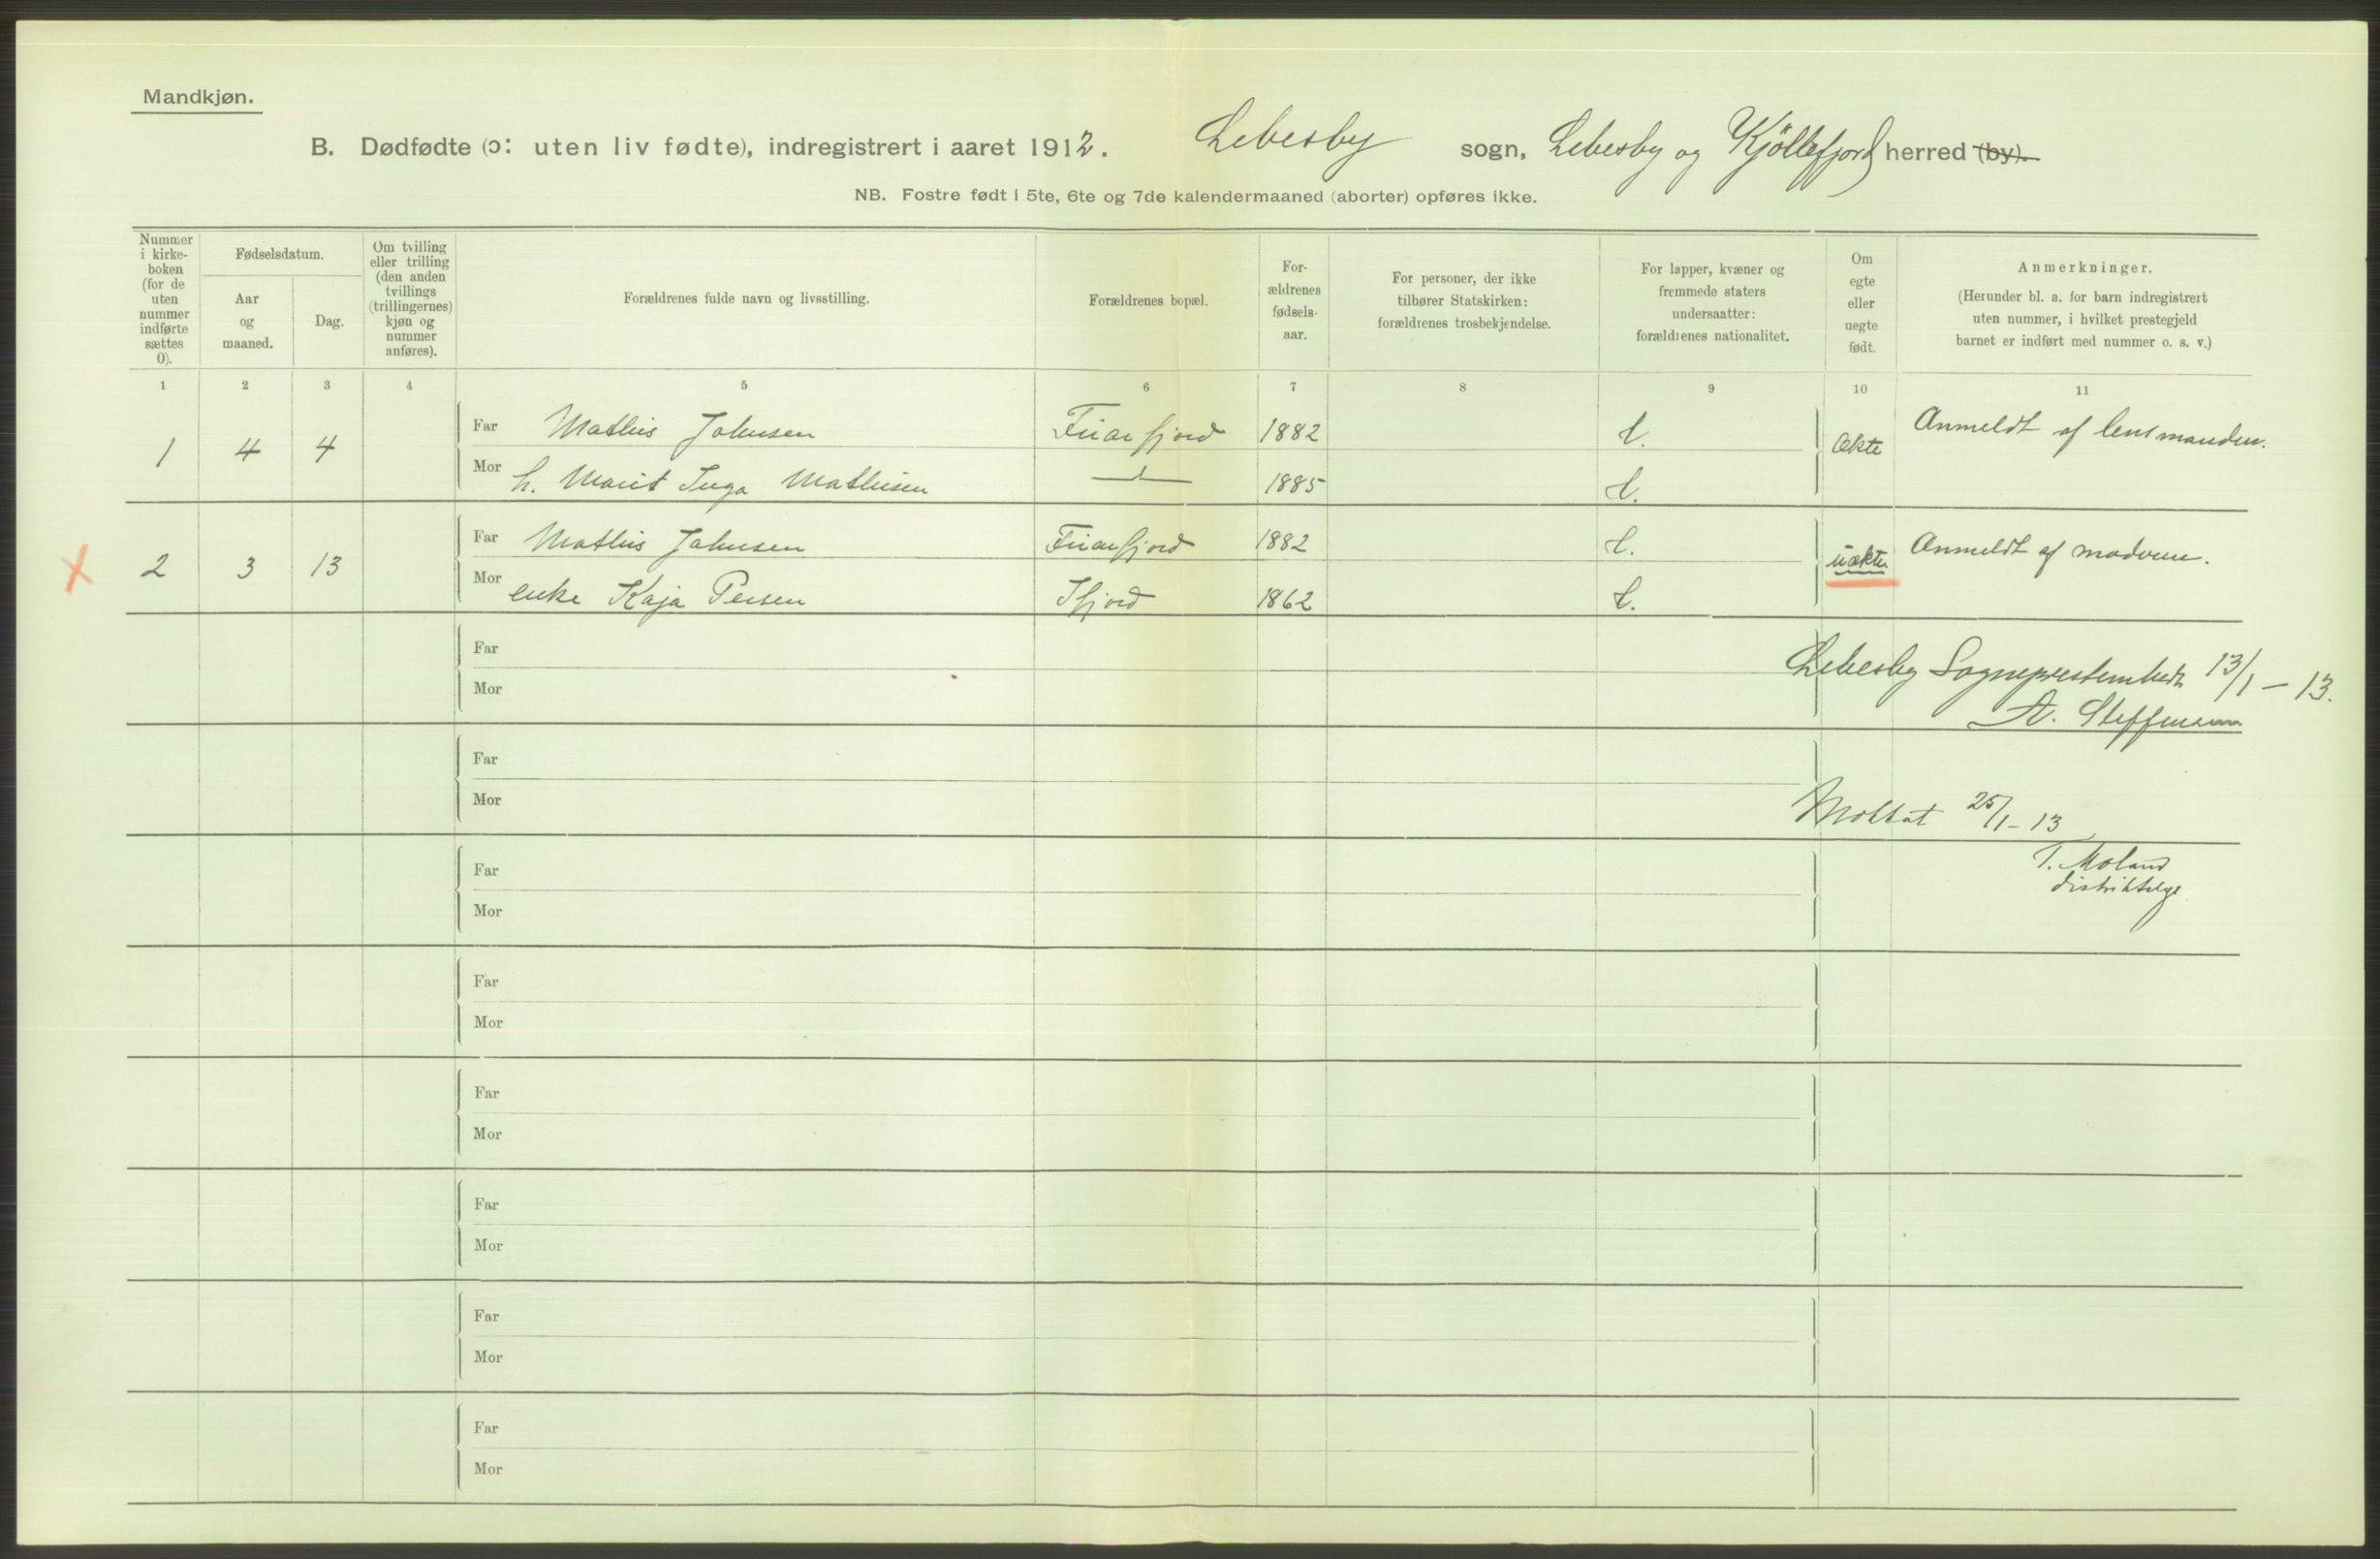 Mandkjøn.
B. Dødfødte (ɔ: uten liv fødte), indregistrert i aaret 1912. Lebesby sogn, Lebesby og Kjöllefjord herred (by).
NB. Fostre født i 5te, 6te og 7de kalendermaaned (aborter) opføres ikke.
Nummer
i kirke-
boken
(for de
uten
nummer
indførte
sættes
0).
Fødselsdatum.
Aar
og
maaned.
Dag.
Om tvilling
eller trilling
(den anden
tvillings
(trillingernes)
kjøn og
nummer
anføres).
Forældrenes fulde navn og livsstilling.
Forældrenes bopæl.
For-
ældrenes
fødsels-
aar.
For personer, der ikke
tilhører Statskirken:
forældrenes trosbekjendelse.
For lapper, kvæner og
fremmede staters
undersaatter:
forældrenes nationalitet.
Om
egte
eller
uegte
født.
Anmerkninger.
(Herunder bl. a. for barn indregistrert
uten nummer, i hvilket prestegjeld
barnet er indført med nummer o. s. v.)
1 2 3 4 5 6 7 8 9 10 11
1 4 4
Far Mathis Johnsen 1882 l. Ækte Anmeldt af lensmanden.
Mor h. Marit Inga Mathisen 1885 l.
X 2 3 13
Far Mathis Johnsen 1882 l. uækte Anmeldt af moderen.
Mor enke Kaja Persen Ifjord 1862 l.
Far
Mor
Lebesby Sogneprestembede 13/1 – 13.
A. Steffensen
Far
Mor
Mottat 25/1 – 13
T. Moland
Far
Mor
Far
Mor
Far
Mor
Far
Mor
Far
Mor
Far
Mor